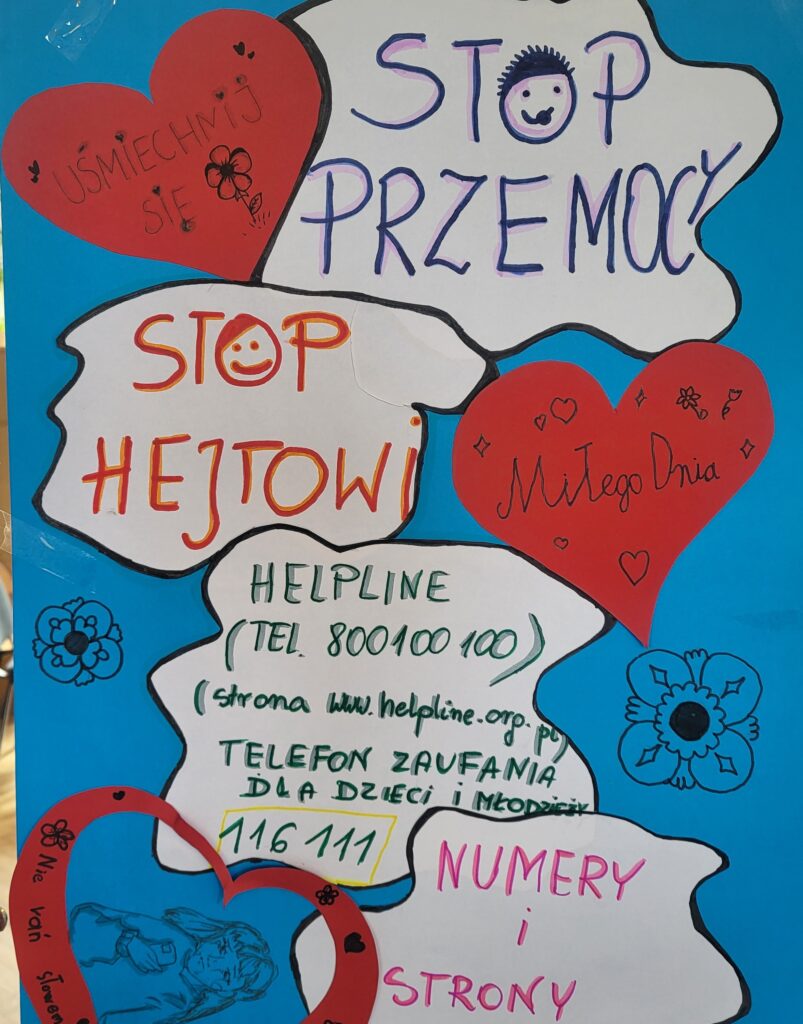 UŚMIECHNIJ
SIĘ
STOP
PRZEMOCY
STOP
HEJTOWI
Miłego Dnia
HELPLINE
(TEL. 800 100 100)
(strona www.helpline.org.pl)
TELEFON ZAUFANIA
DLA DZIECI i MŁODZIEŻY
116 111
NUMERY
i
STRONY
Nie rań słowem